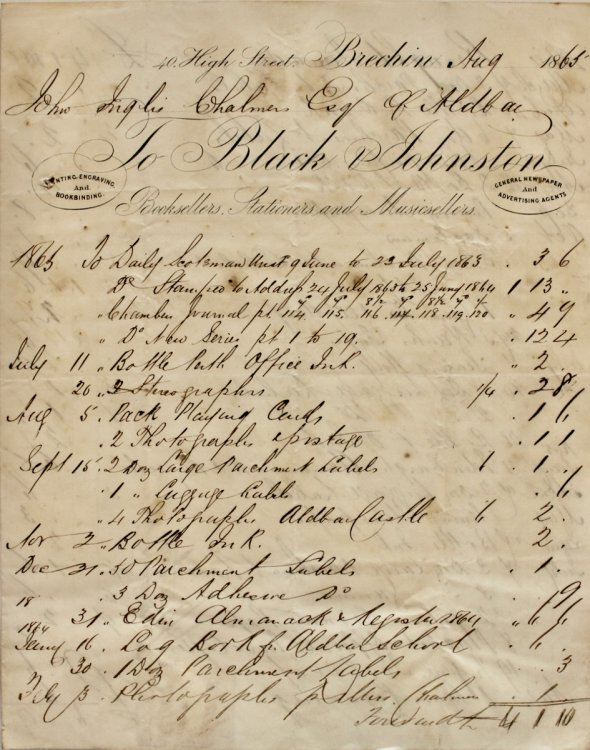 40, High Street, Brechin Aug 1865
John Inglis Chalmers Esq of Aldbar
To Black & Johnston
PRINTING, ENGRAVING,
And
BOOKBINDING.
GENERAL NEWSPAPER
And
ADVERTISING AGENTS
Booksellers, Stationers and Musicsellers.
1863 To Daily Scotsman 9 June to 23 July 1863 . 3 6
Do Stamped to 24 July 1863 to 25 Jany 1864 1 13 "
" Chambers Journal pt 114 115 116 117 118 119 120 " 4 9
" Do New Series pt 1 to 19. . 12 4
July 11 " Bottle Perth Office Ink. " 2 .
20 " 2 Stereographs 1/4 . 2 8
Aug 5 . Pack Playing Cards . 1 6
. 2 Photographs & postage . 1 1
Sept 15 . 2 Doz Large Parchment Labels 6 . 1 .
. 1 " Luggage Labels . 6
" 4 Photographs Aldbar Castle 6 2 .
Nov 2 " Bottle Ink. 2 .
Dec 21 . 50 Parchment Labels . 1 .
18 . 3 Doz Adhesive Do 9
31 " Edin Almanack & Register 1864
1864
Jany 16 . Log Book for Aldbar School
30 . 1 Doz Parchment Labels . 3
Feby 3 . Photographs Miss Chalmers . 1 .
Forward 4 1 10